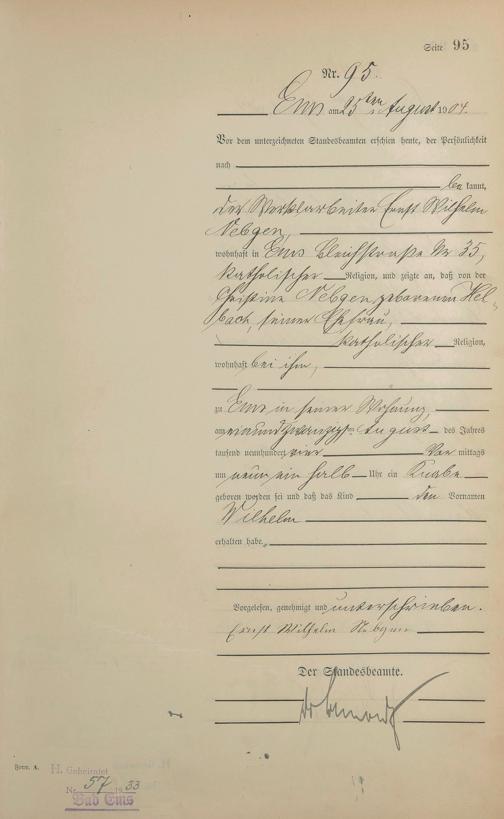 Seite 95
Nr. 95.
Ems am 25ten August 1904.
Vor dem unterzeichneten Standesbeamten erschien heute, der Persönlichkeit
nach
be kannt,
der Werksarbeiter Ernst Wilhelm
Nebgen,
wohnhaft in Ems Bleichstraße Nr 35,
katholischer Religion, und zeigte an, daß von der
Christine Nebgen geborenen Hel-
bach, seiner Ehefrau,
katholischer Religion,
wohnhaft bei ihm,
zu Ems in seiner Wohnung,
am einundzwanzigsten August des Jahres
tausend neunhundert vier Vor mittags
um neun ein halb Uhr ein Knabe
geboren worden sei und daß das Kind den Vornamen
Wilhelm
erhalten habe.
Vorgelesen, genehmigt und unterschrieben.
Ernst Wilhelm Nebgen
Der Standesbeamte.
Form. A.
H. Geheiratet
Nr. 57 1933
Bad Ems